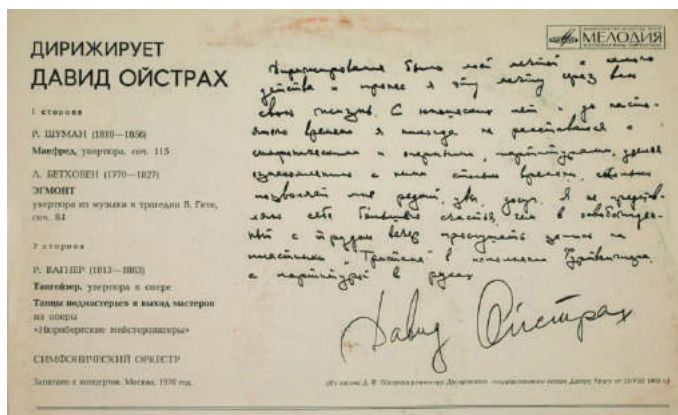 ДИРИЖИРУЕТ
ДАВИД ОЙСТРАХ
1 сторона
Р. ШУМАН (1810—1856)
Манфред, увертюра, соч. 115
Л. БЕТХОВЕН (1770—1827)
ЭГМОНТ
увертюра из музыки к трагедии В. Гете,
соч. 84
2 сторона
Р. ВАГНЕР (1813—1883)
Тангейзер, увертюра к опере
Танцы подмастерьев и выход мастеров
из оперы
«Нюрнбергские мейстерзингеры»
СИМФОНИЧЕСКИЙ ОРКЕСТР
Записано с концертов. Москва, 1970 год.
МЕЛОДИЯ
Дирижирование было моей мечтой с самого
детства и пронес я эту мечту через всю
свою жизнь. С юношеских лет и до насто-
ящего времени я никогда не расставался с
симфоническими и оперными партитурами, уделяя
ознакомлению с ними столько времени, сколько
позволял мне редкий досуг. Я не представ-
ляю себе большего счастья, чем в освобожден-
ный с трудом вечер прослушать запись на
пластинки „Тристана" в исполнении Фуртвенглера,
с партитурой в руках
Давид Ойстрах